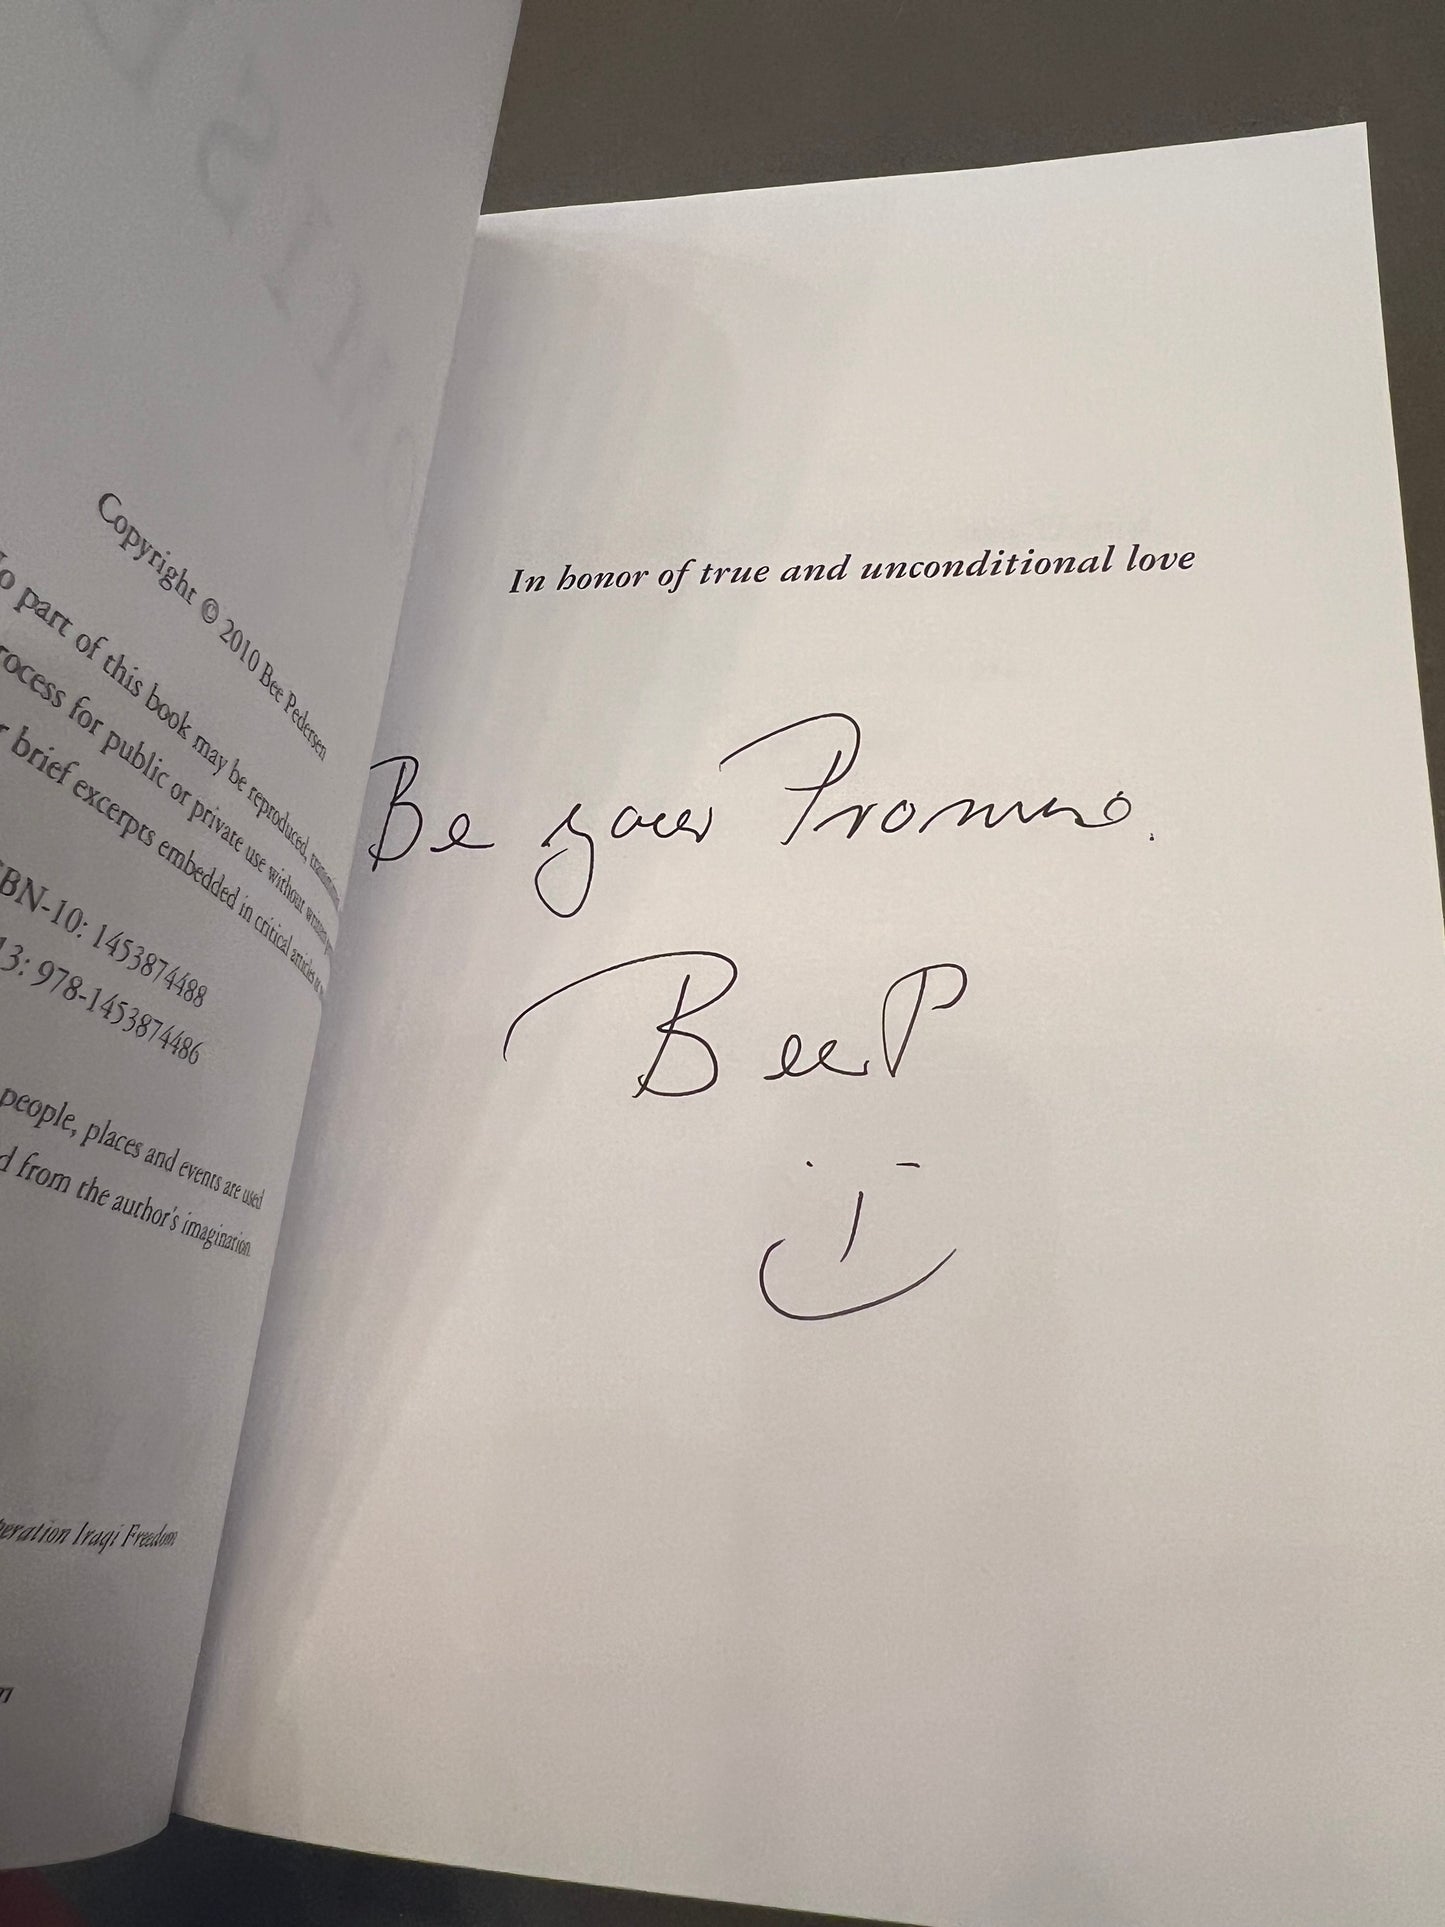 Copyright © 2010 Bee Pedersen
No part of this book may be reproduced,
rocess for public or private use without written
r brief excerpts embedded in critical articles or
BN-10: 1453874488
13: 978-1453874486
people, places and events are used
d from the author's imagination.
peration Iraqi Freedom
In honor of true and unconditional love
Be your Promise.
BeeP